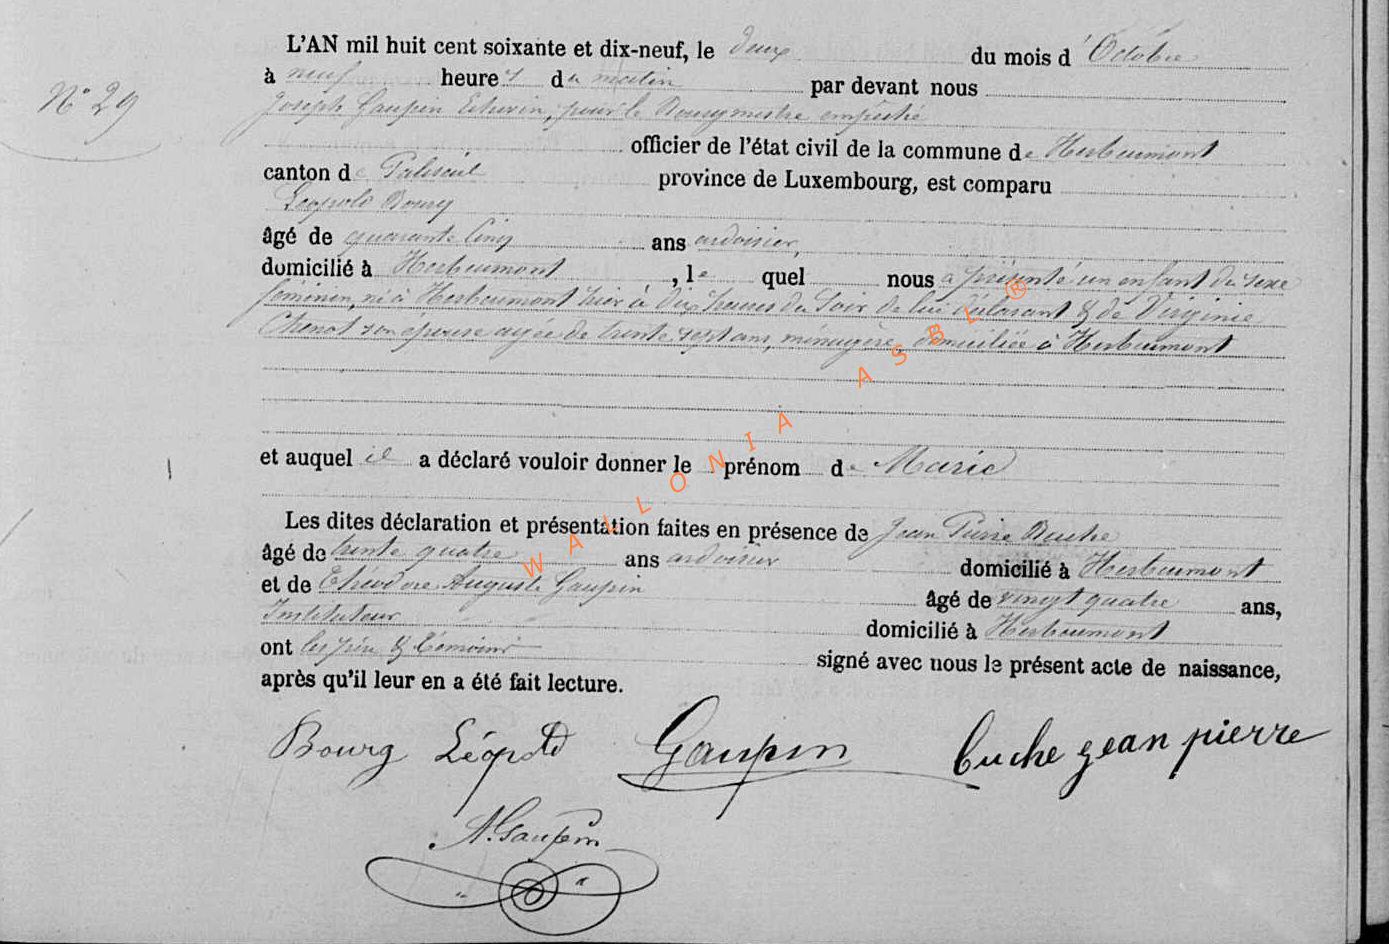 L'AN mil huit cent soixante et dix-neuf, le deux du mois d'Octobre
N° 29
à neuf heures du matin par devant nous
Joseph Gaupin Echevin, pour le Bourgmestre empêché
officier de l'état civil de la commune de Herbeumont
canton de Paliseul province de Luxembourg, est comparu
Léopold Bourg
âgé de quarante cinq ans ardoisier,
domicilié à Herbeumont, le quel nous a présenté un enfant du sexe
féminin, né à Herbeumont hier à dix heures du soir de lui déclarant & de Virginie
Chenot son épouse agée de trente sept ans, ménagère, domiciliée à Herbeumont
et auquel il a déclaré vouloir donner le prénom de Marie
Les dites déclaration et présentation faites en présence de Jean Pierre Buche
âgé de trente quatre ans ardoisier domicilié à Herbeumont
et de Théodore Auguste Gaupin âgé de vingt quatre ans,
Instituteur domicilié à Herbeumont
ont les père & témoins signé avec nous le présent acte de naissance,
après qu'il leur en a été fait lecture.
Bourg Léopold Gaupin buche jean pierre
A. Gaupin
WALLONIA ASBL ®